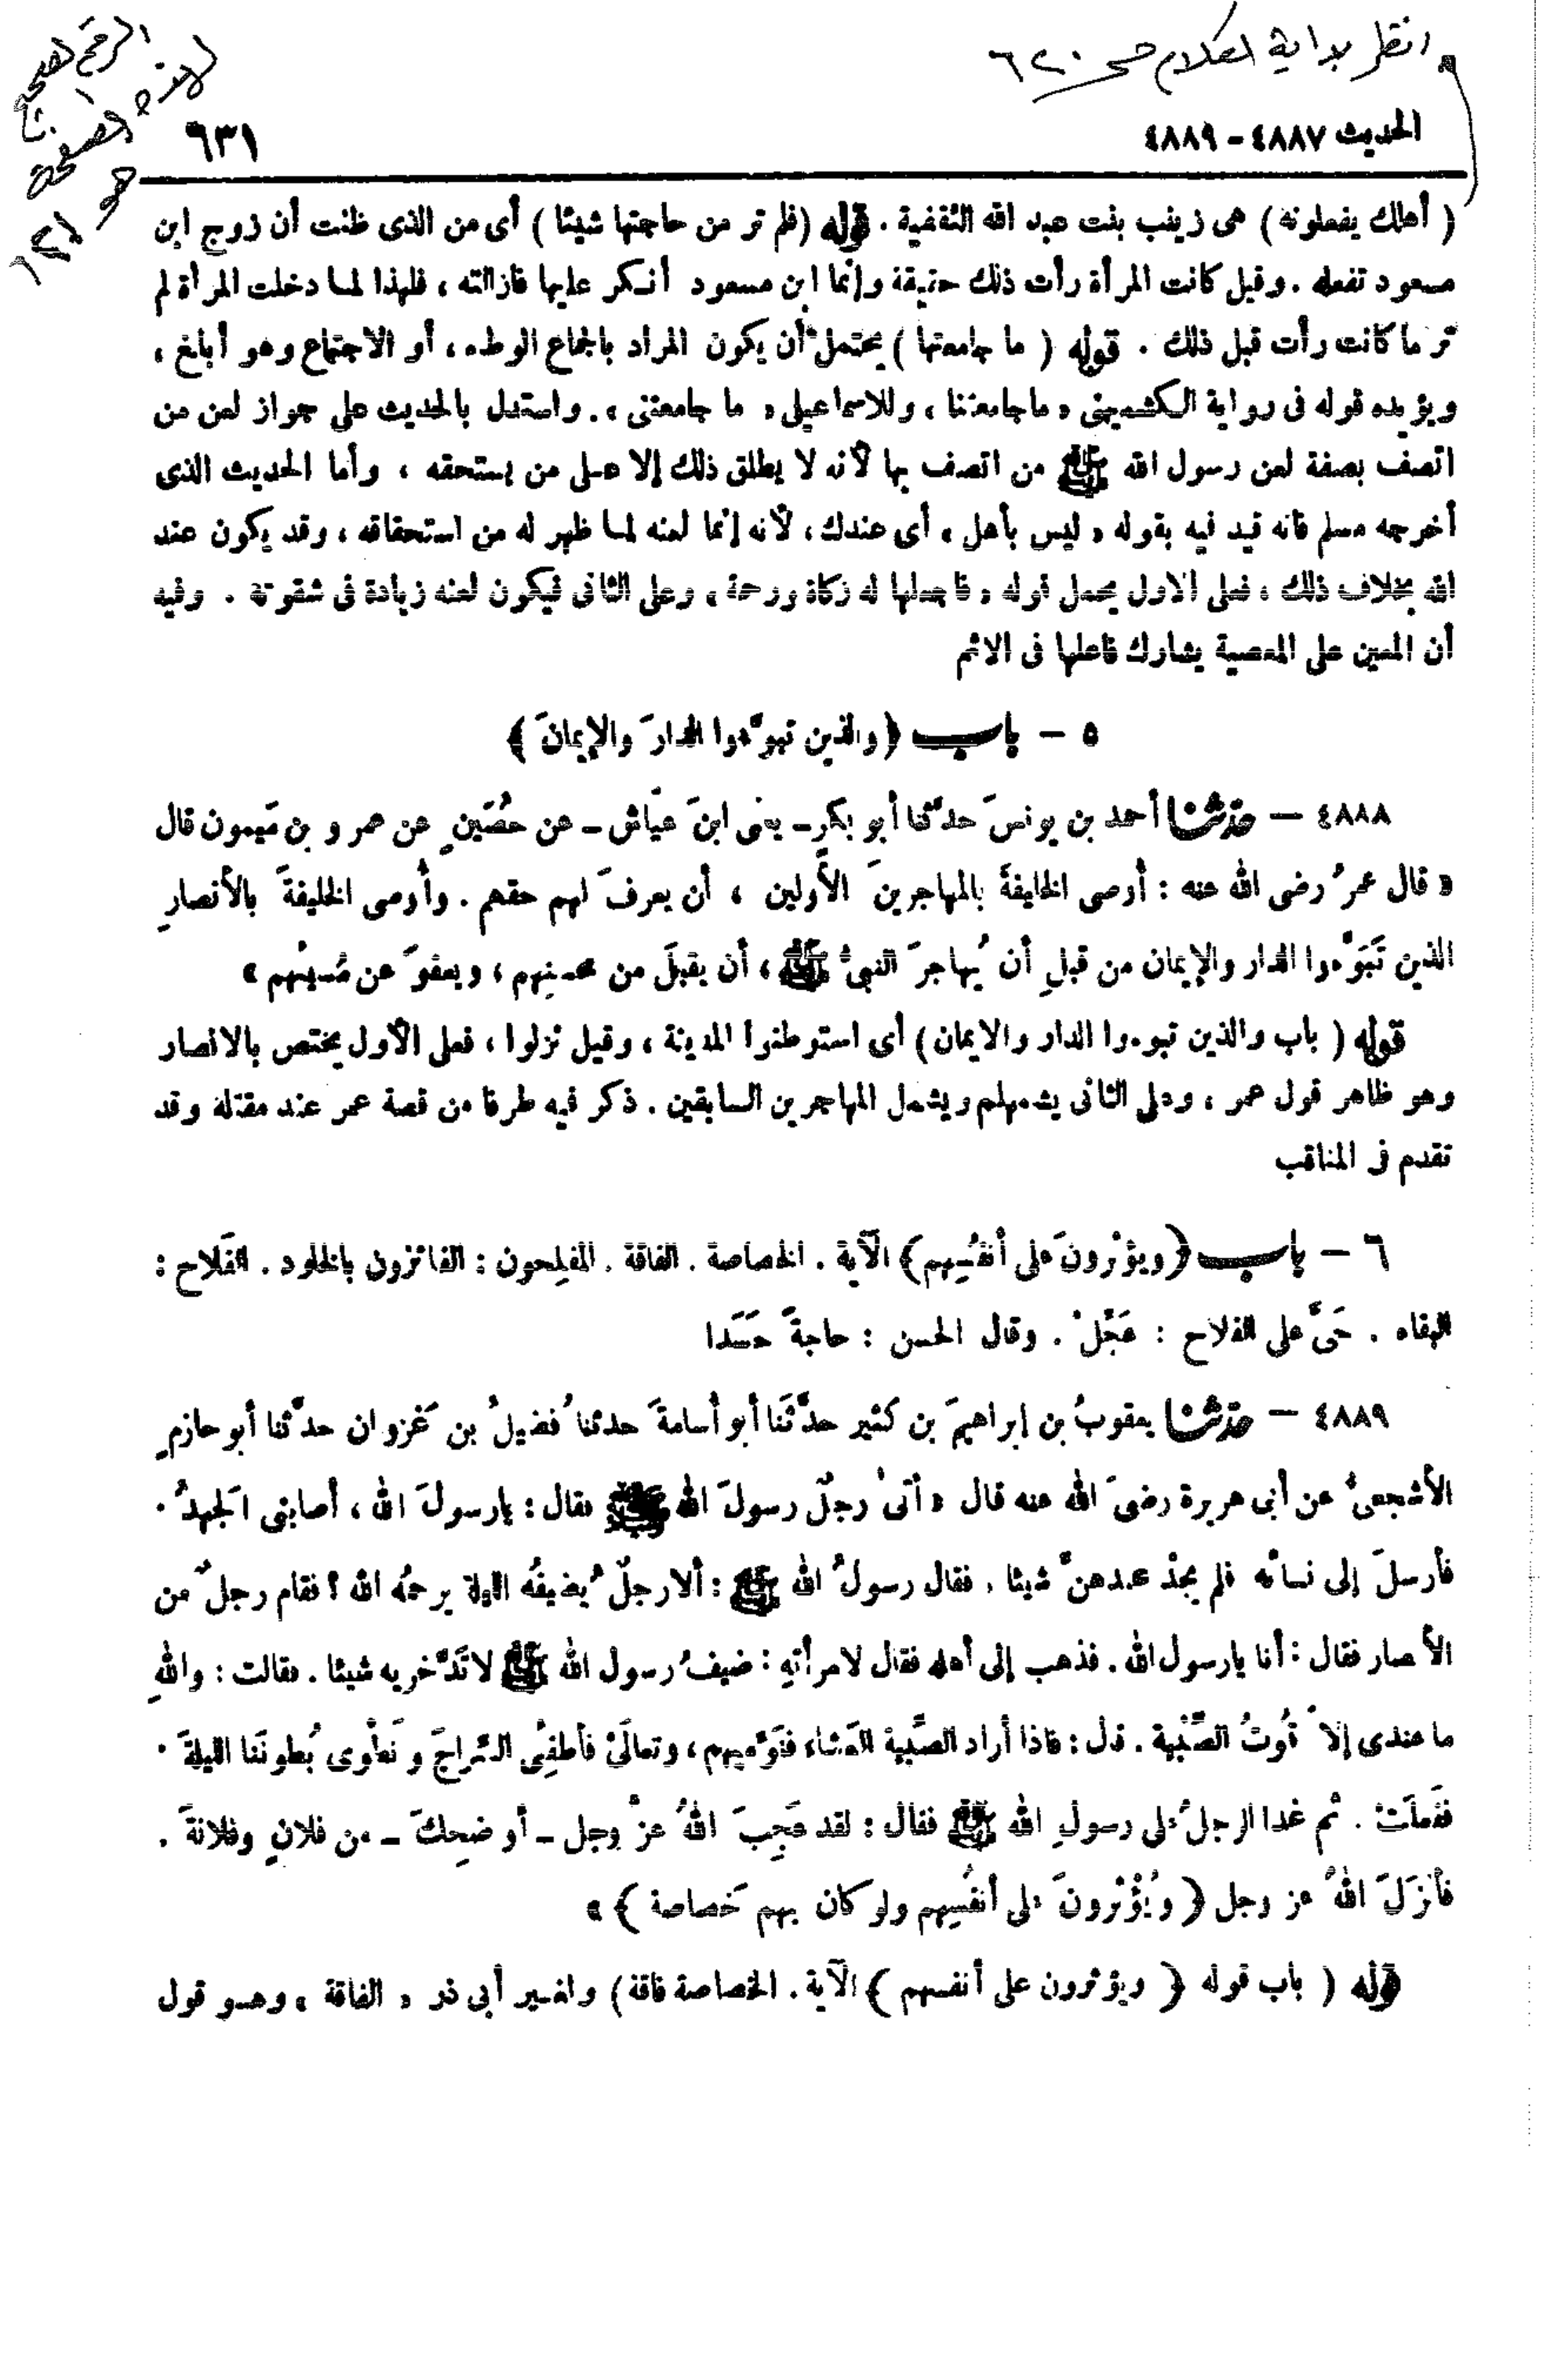 انظر بداية الكلام صـ ٦٢٠
الرقم الصحيح
لهذه الصفحة
هو ٦٢١
الحديث ٤٨٨٧ - ٤٨٨٩
٦٣١
( أهلك يفعلونه ) هى زينب بنت عبد الله الثقفية . قوله ( فلم تر من حاجتها شيئا ) أى من الذى ظنت أن زوج ابن
مسعود تفعله . وقيل كانت المرأة رأت ذلك حقيقة وإنما ابن مسعود أنكر عليها فازالته ، فلهذا لما دخلت المرأة لم
تر ما كانت رأت قبل ذلك . قوله ( ما جامعتها ) يحتمل أن يكون المراد بالجماع الوطء ، أو الاجتماع وهو أبلغ ،
ويؤيده قوله فى رواية الكشميهنى « ما جامعتنا ، وللاسماعيلى « ما جامعتنى ، . واستدل بالحديث على جواز لعن من
اتصف بصفة لعن رسول الله ﷺ من اتصف بها لأنه لا يطلق ذلك إلا على من يستحقه ، وأما الحديث الذى
أخرجه مسلم فانه قيد فيه بقوله « ليس بأهل ، أى عندك ، لأنه إنما لعنه لما ظهر له من استحقاقه ، وقد يكون عند
الله بخلاف ذلك ، فعلى الاول يحمل قوله « فاجعلها له زكاة ورحمة ، وعلى الثانى فيكون لعنه زيادة فى شقوته . وفيه
أن المعين على المعصية يشارك فاعلها فى الاثم
٥ - باب ﴿ والذين تبوَّءوا الدارَ والإيمانَ ﴾
٤٨٨٨ - حدّثنا أحمد بن يونسَ حدَّثنا أبو بكرٍ - يعنى ابنَ عيّاش - عن حُصَينٍ عن عمرو بن مَيمون قال
« قال عمرُ رضى الله عنه : أُوصى الخليفةَ بالمهاجرينَ الأَوَّلين ، أن يعرفَ لهم حقهم . وأُوصى الخليفةَ بالأنصارِ
الذين تَبَوَّءوا الدار والإيمان من قبلِ أن يُهاجرَ النبىُّ ﷺ ، أن يقبلَ من محسنِهم ، ويعفوَ عن مُسيئهم »
قوله ( باب والذين تبوءوا الدار والايمان ) أى استوطنوا المدينة ، وقيل نزلوا ، فعلى الأول يختص بالانصار
وهو ظاهر قول عمر ، وعلى الثانى يشملهم ويشمل المهاجرين السابقين . ذكر فيه طرفا من قصة عمر عند مقتله وقد
تقدم فى المناقب
٦ - باب ﴿ ويؤْثرونَ على أنفُسِهم ﴾ الآية . الخصاصة . الفاقة . المفلِحون : الفائزون بالخلود . الفَلاح :
البقاء . حَىَّ على الفلاح : عَجِّلْ . وقال الحسن : حاجةً حَسَدا
٤٨٨٩ - حدّثنا يعقوبُ بن إبراهيمَ بن كثير حدَّثَنا أبو أُسامةَ حدثنا فُضيلُ بن غَزوان حدَّثنا أبو حازمٍ
الأشجعىُّ عن أبى هريرة رضىَ الله عنه قال « أتى رجلٌ رسولَ الله ﷺ فقال : يارسولَ الله ، أصابنى الجَهدُ .
فأرسلَ إلى نسائه فلم يجدْ عندهنَّ شيئا . فقال رسولُ الله ﷺ : ألا رجلٌ يُضيفُه الليلة يرحمُه الله ؟ فقام رجلٌ من
الأنصار فقال : أنا يارسول الله . فذهب إلى أهله فقال لامرأتِه : ضيفُ رسول الله ﷺ لا تَدَّخريه شيئا . فقالت : واللهِ
ما عندى إلاّ قُوتُ الصِّبْية . قال : فاذا أراد الصِّبيةُ العَشاء فنَوِّميهم ، وتعالَىْ فأطفِئى السِّراجَ ونَطْوى بُطونَنا الليلةَ .
ففعلَتْ . ثم غدا الرجلُ على رسولِ الله ﷺ فقال : لقد عَجِبَ اللهُ عزَّ وجل - أو ضحِكَ - من فلانٍ وفلانةَ .
فأنزَلَ اللهُ عز وجل ﴿ ويُؤْثرونَ على أنفُسِهم ولو كان بهم خَصاصة ﴾ »
قوله ( باب قوله ﴿ ويؤثرون على أنفسهم ﴾ الآية . الخصاصة فاقة ) ولغير أبى ذر « الفاقة ، وهو قول